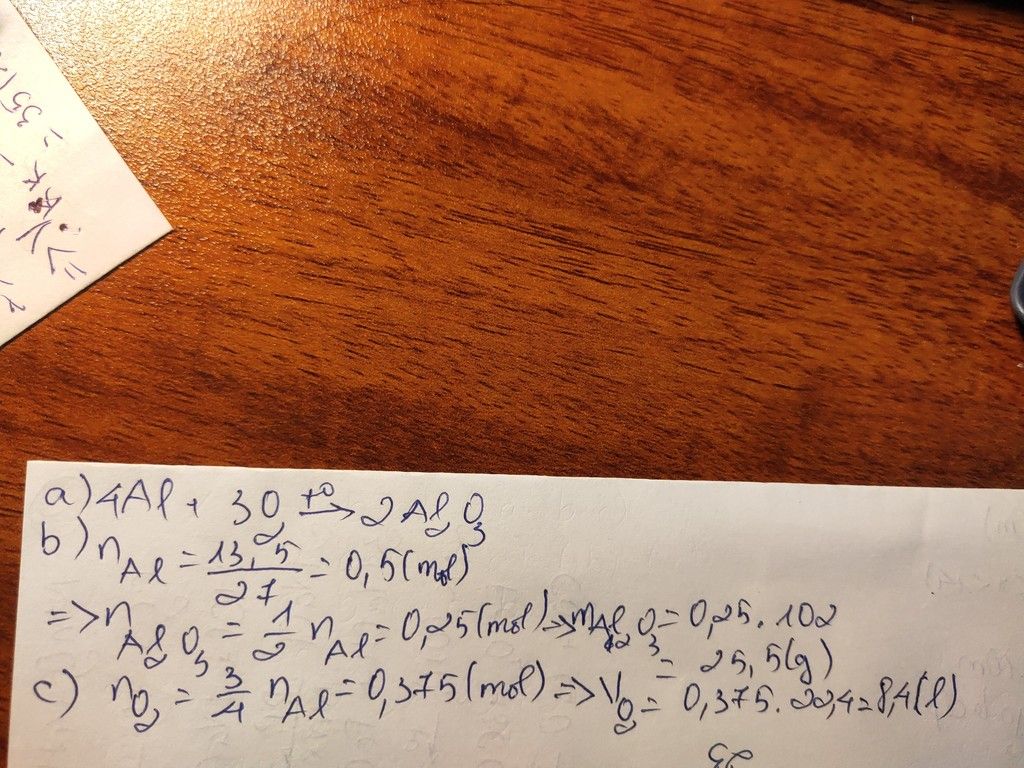 a) 4Al + 3O₂ t°→ 2Al₂O₃
b) nAl = 13,5/27 = 0,5 (mol)
=> nAl₂O₃ = 1/2 nAl = 0,25 (mol) => mAl₂O₃ = 0,25 . 102
= 25,5 (g)
c) nO₂ = 3/4 nAl = 0,375 (mol) => VO₂ = 0,375 . 22,4 = 8,4 (l)